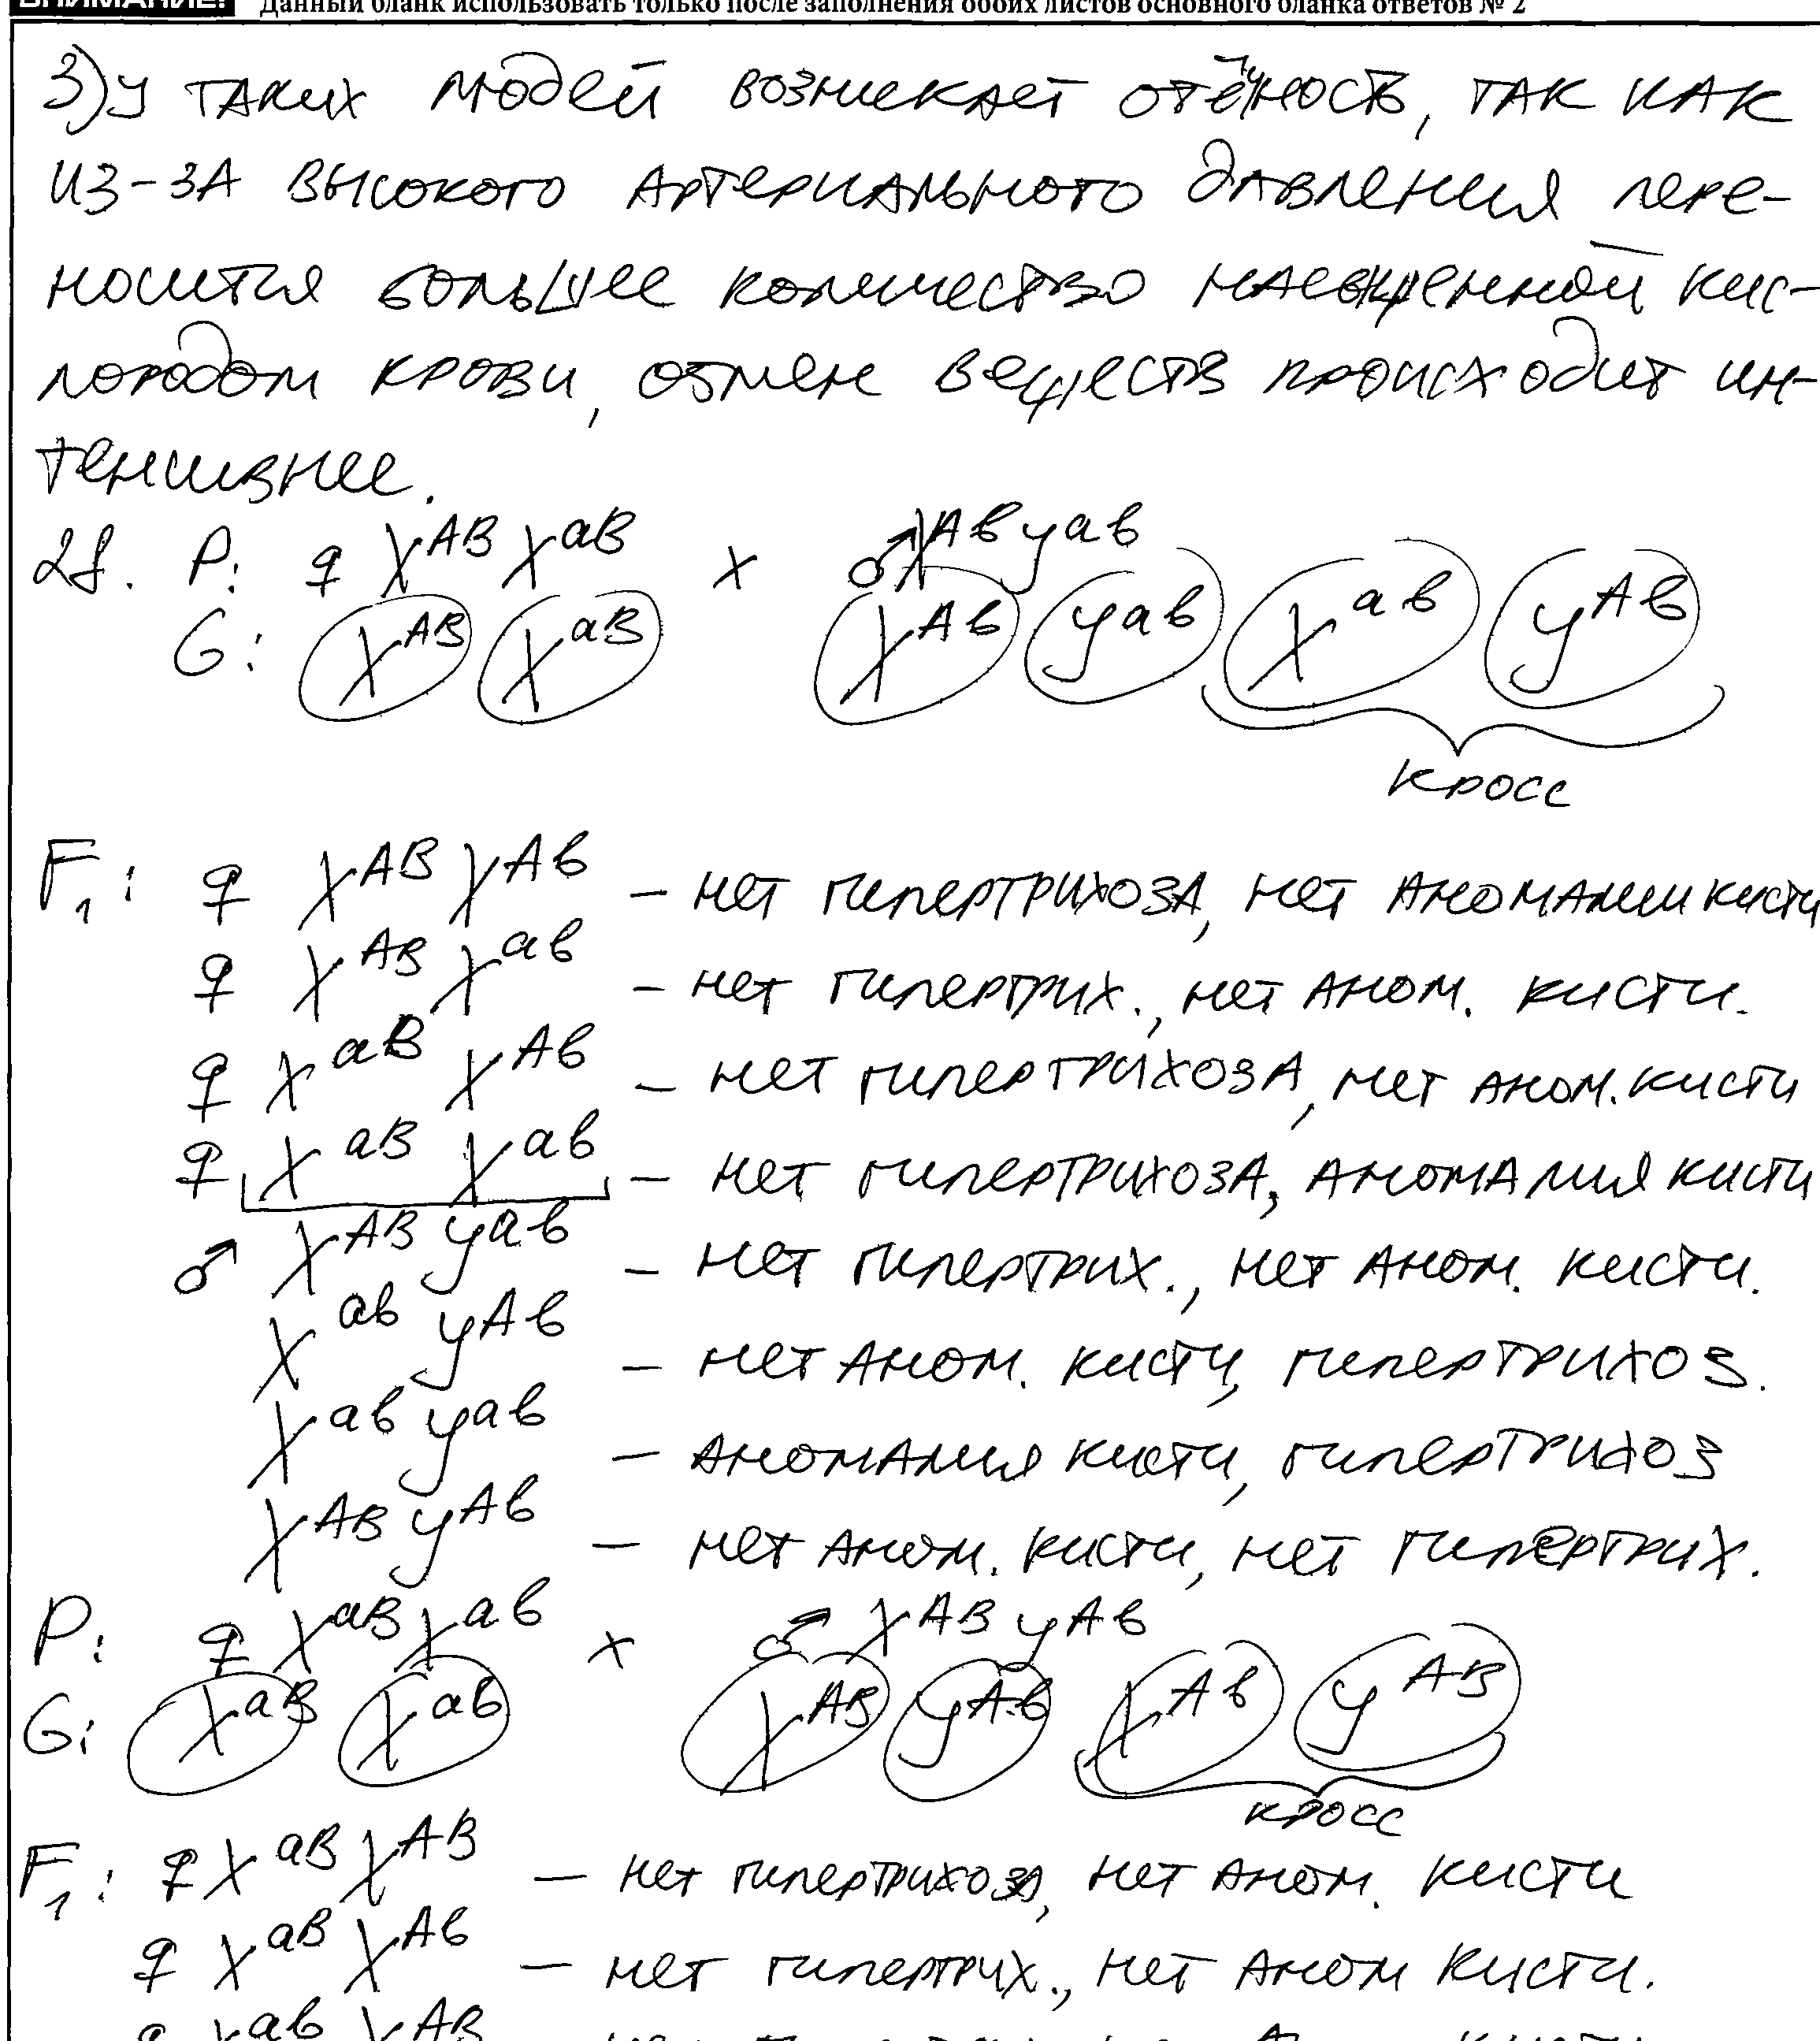 ВНИМАНИЕ! Данный бланк использовать только после заполнения обоих листов основного бланка ответов № 2
3) У таких людей возникает отёчность, так как
из-за высокого артериального давления пере-
носится большее количество насыщенной кис-
лородом крови, обмен веществ происходит ин-
тенсивнее.
28. P: ♀ X^AB X^aB x ♂ X^Ab y^ab
G: X^AB X^aB X^Ab y^ab X^ab y^Ab
кросс
F₁: ♀ X^AB X^Ab – нет гипертрихоза, нет аномалии кисти
♀ X^AB X^ab – нет гипертрих., нет аном. кисти.
♀ X^aB X^Ab – нет гипертрихоза, нет аном. кисти
♀ X^aB X^ab – нет гипертрихоза, аномалия кисти
♂ X^AB y^ab – нет гипертрих., нет аном. кисти.
X^ab y^Ab – нет аном. кисти, гипертрихоз.
X^ab y^ab – аномалия кисти, гипертрихоз
X^AB y^Ab – нет аном. кисти, нет гипертрих.
P: ♀ X^aB X^ab x ♂ X^AB y^Ab
G: X^aB X^ab X^AB y^Ab X^Ab y^AB
кросс
F₁: ♀ X^aB X^AB – нет гипертрихоза, нет аном. кисти
♀ X^aB X^Ab – нет гипертрих., нет аном кисти.
♀ X^ab X^AB